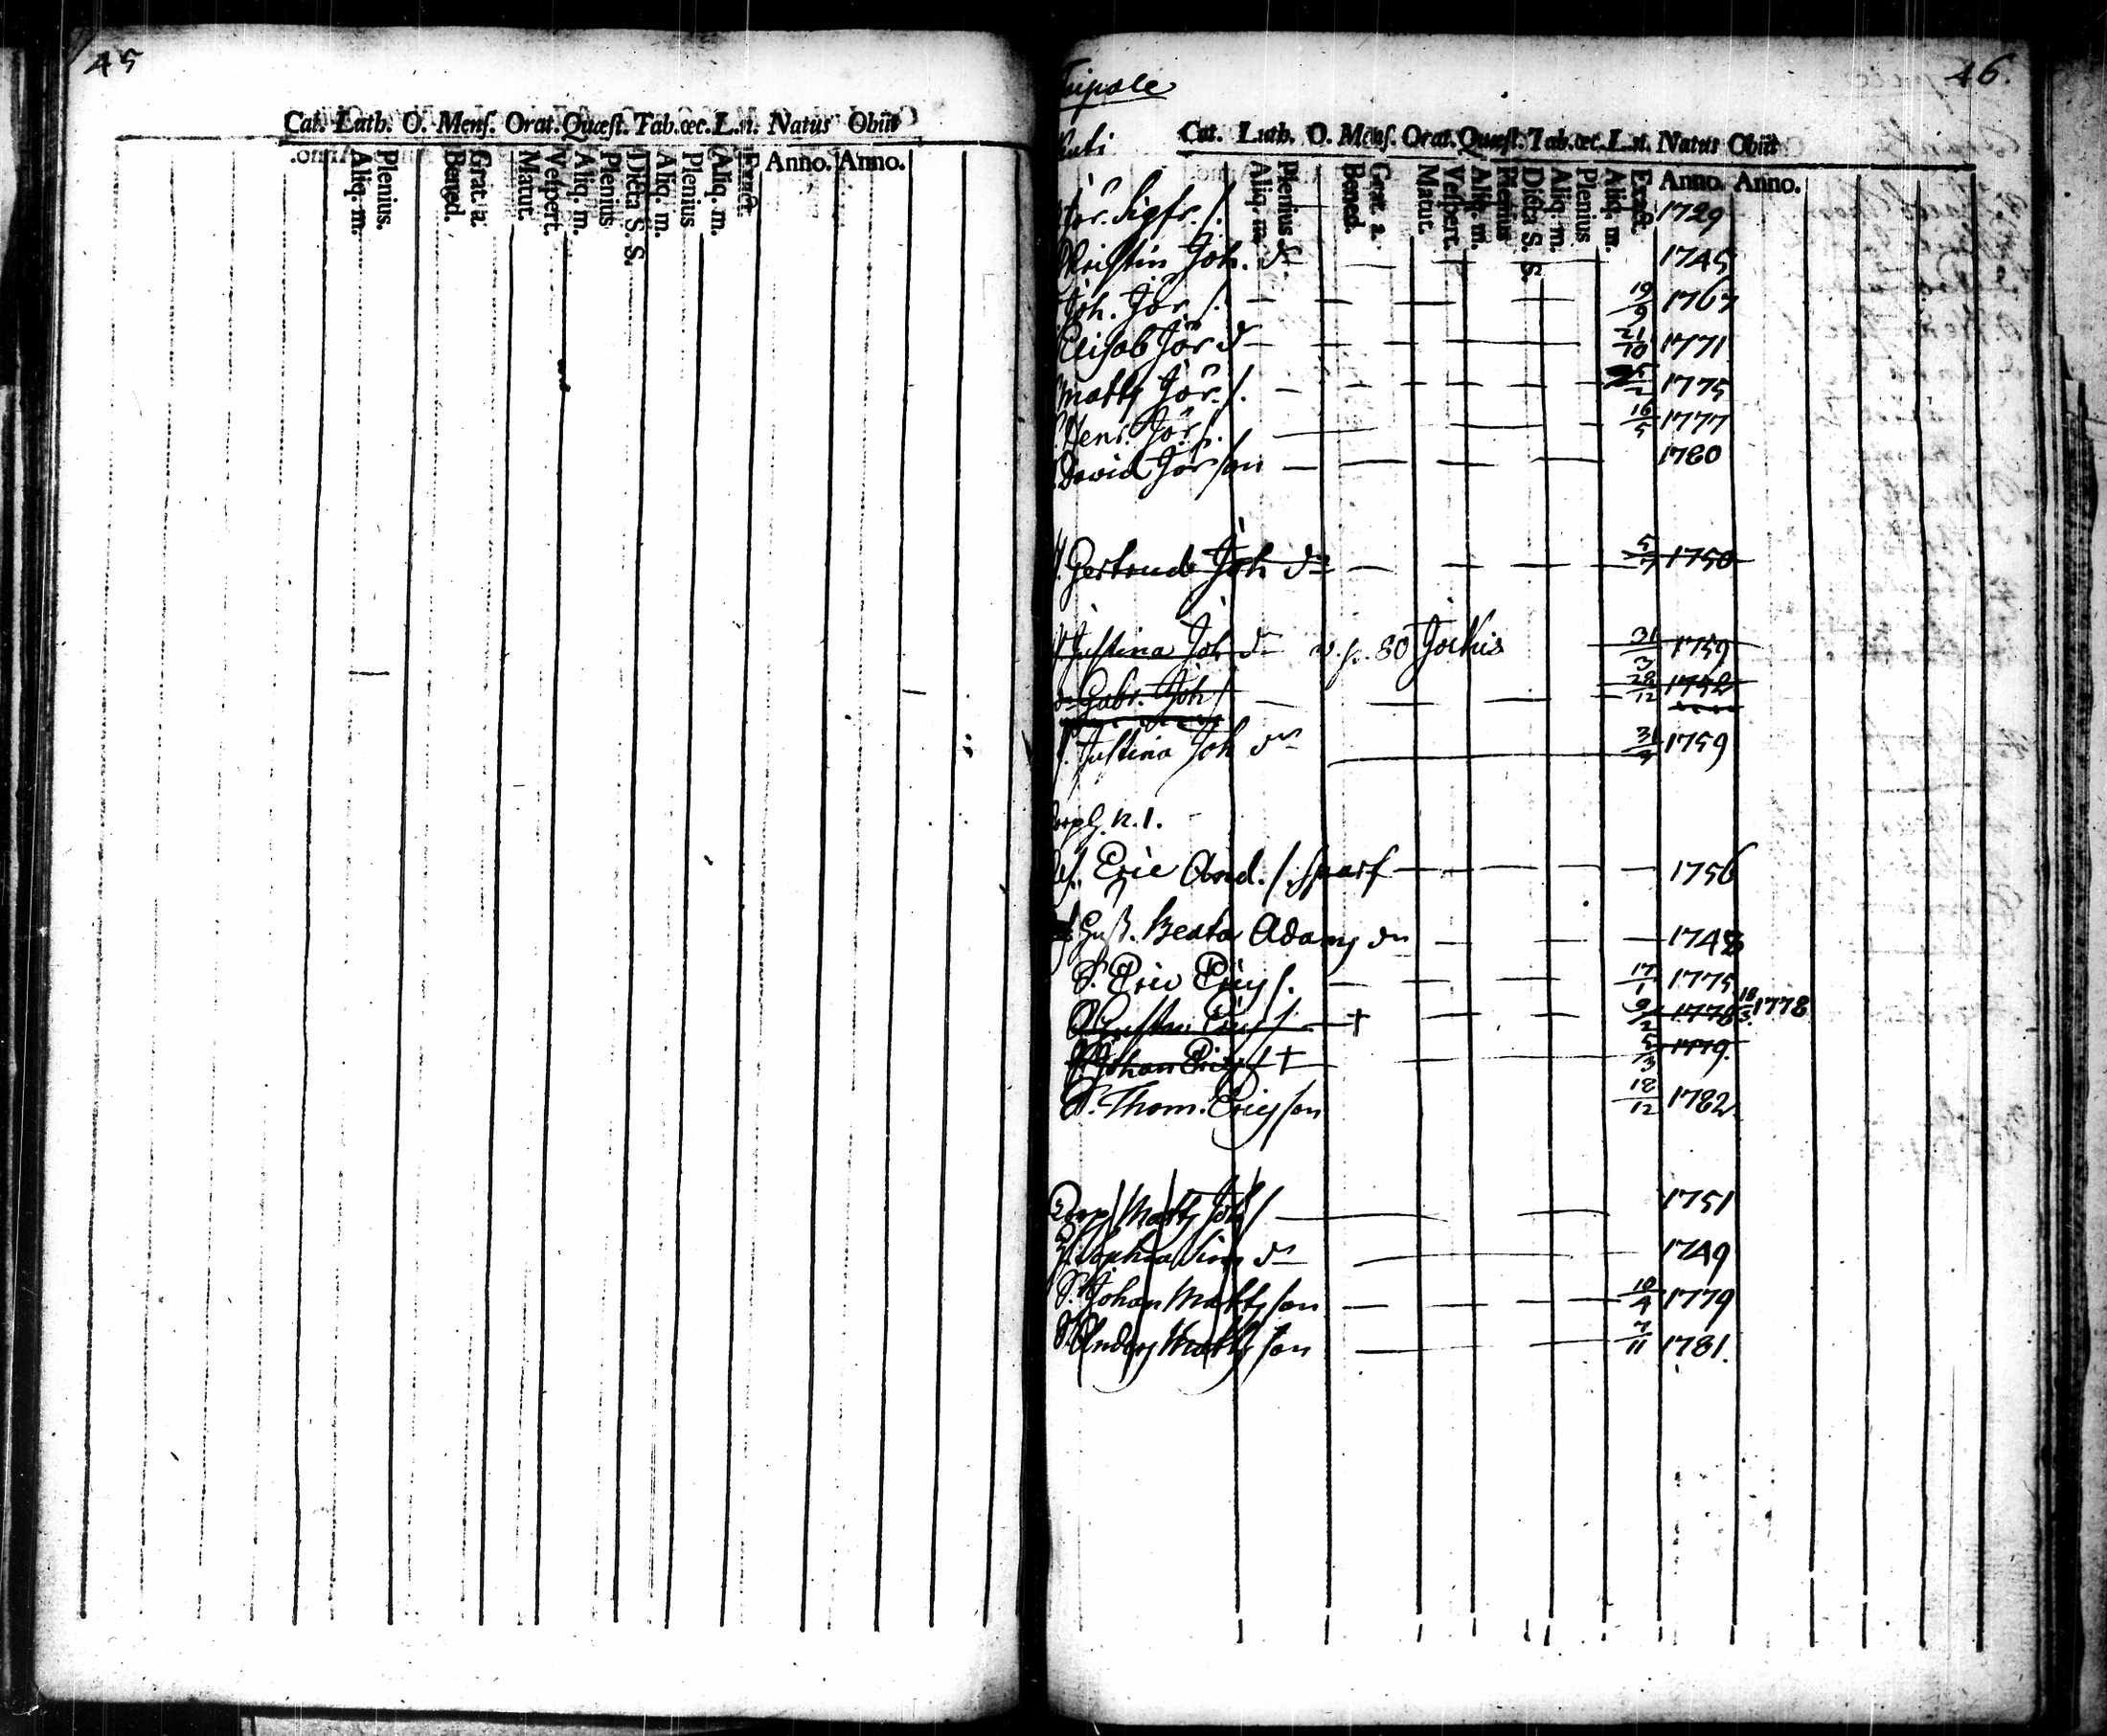 45
Cat. Luth. O. Mens. Orat. Quæst. Tab. œc. L. n. Natus Obiit
Aliq. m. Plenius. Bened. Grat. a. Matut. Vespert. Aliq. m. Plenius Dicta S. S. Aliq. m. Plenius Aliq. m. Exact. Anno. Anno.
46.
Cat. Luth. O. Mens. Orat. Quæst. Tab. œc. L. n. Natus Obiit
Aliq. m. Plenius Bened. Grat. a. Matut. Vespert. Aliq. m. Plenius Dicta S. S. Aliq. m. Plenius Aliq. m. Exact. Anno. Anno.
Jör. Sigfr. s. 1729
Christin Joh. dr 1745
Joh. Jör. s. 19/9 1767
Elisab Jör dr 21/10 1771
Matts Jör. s. 1775
Henr. Jör s. 16/5 1777
David Jörson 1780
Gertrud Joh dr 5/7 1750
Justina Joh dr 31/3 1759
Gabr. Joh s 28/12 1752
Justina Joh dr 1759
n. 1.
Eric And. s. Sparf 1756
Hust. Beata Adams dr
S. Eric Erics s. 17/1 1775
Gustav Erics s. † 9/2 1778 18/3 1778
S. Johan Erics s † 5/3 1779
S. Thom. Ericsson 18/12 1782
Corp Matts Joh s 1751
Sophia Sim dr 1749
S. Johan Mattsson 10/4 1779
S. Anders Mattsson 7/11 1781.